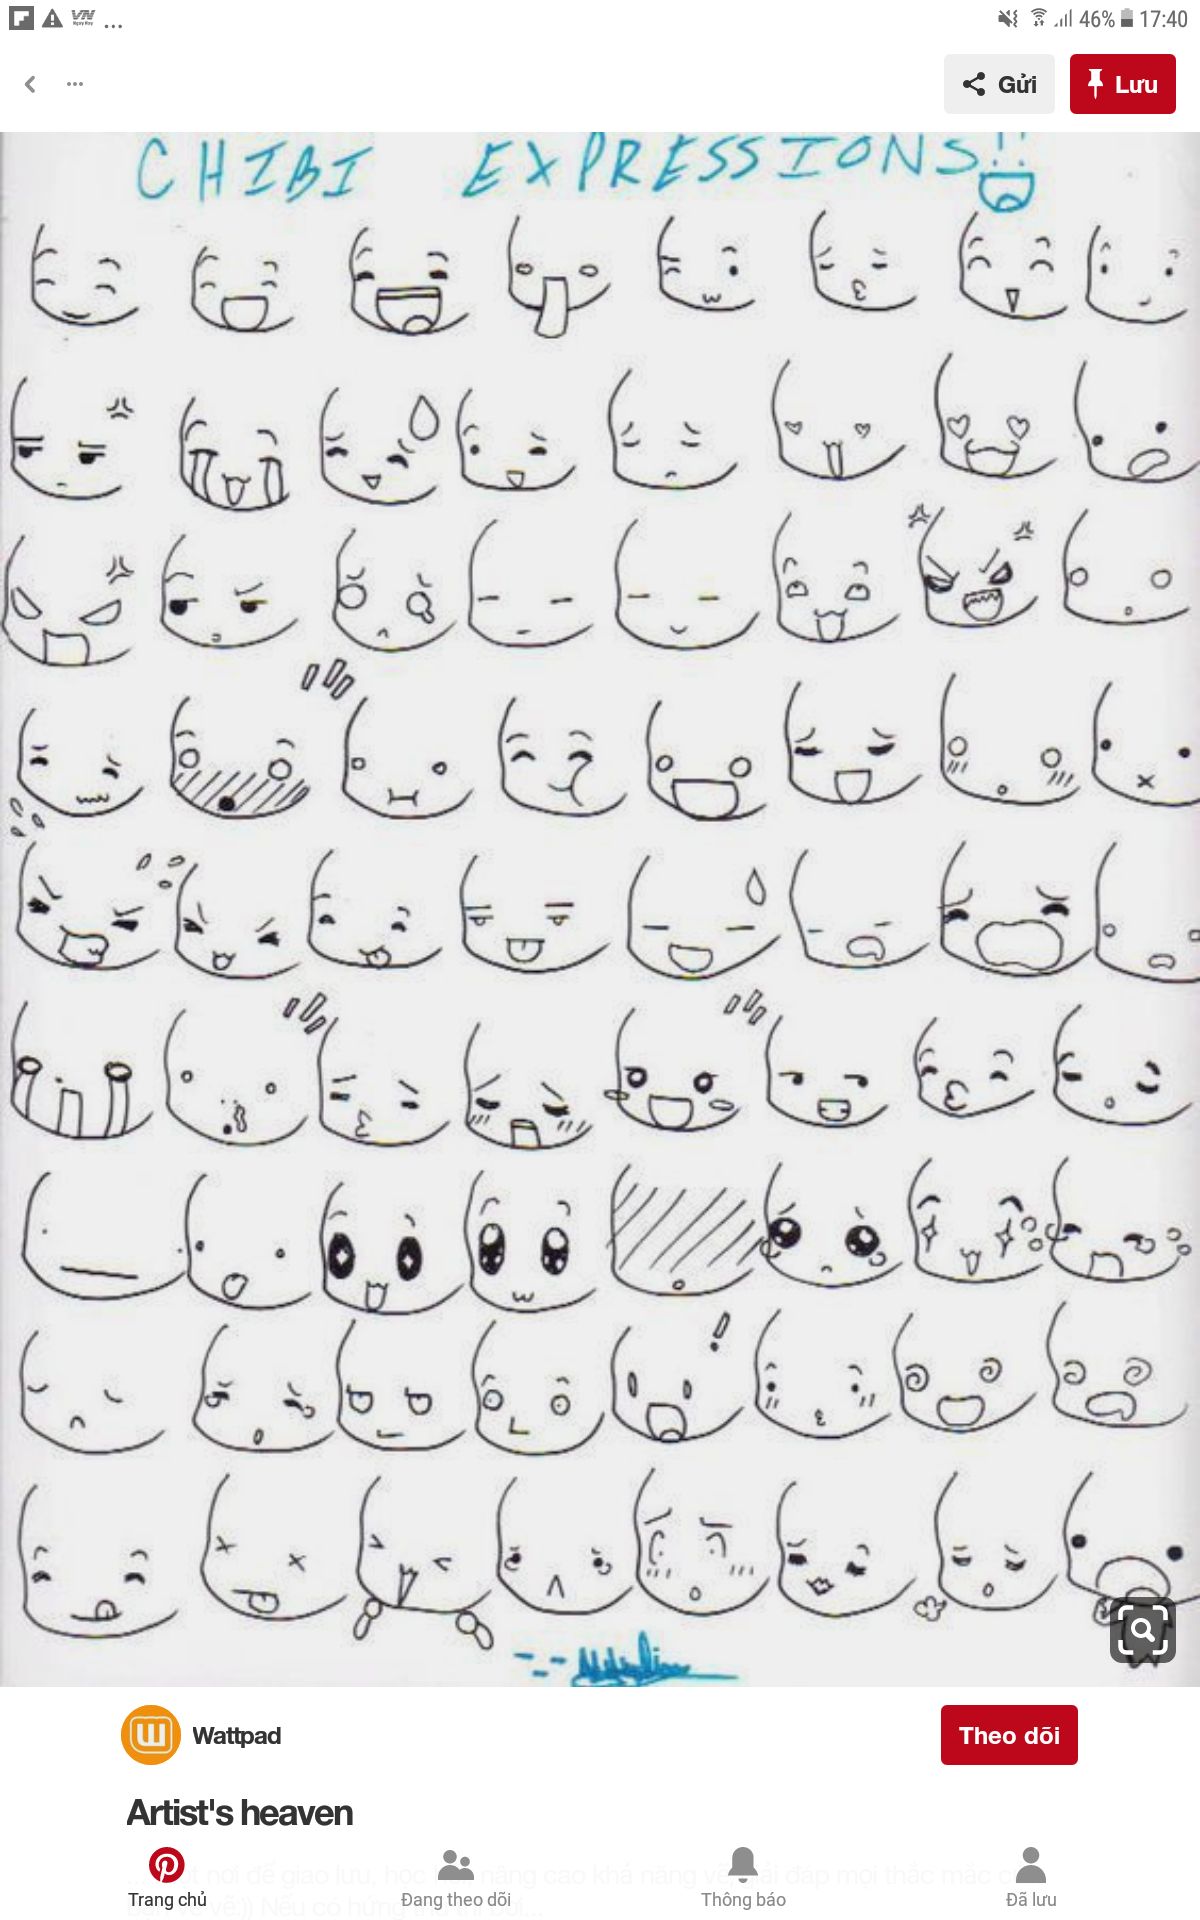 46% 17:40
Gửi Lưu
CHIBI EXPRESSIONS!!
Wattpad
Theo dõi
Artist's heaven
nơi để giao lưu, học nâng cao khả năng vẽ, giải đáp mọi thắc mắc
Trang chủ Đang theo dõi Thông báo Đã lưu